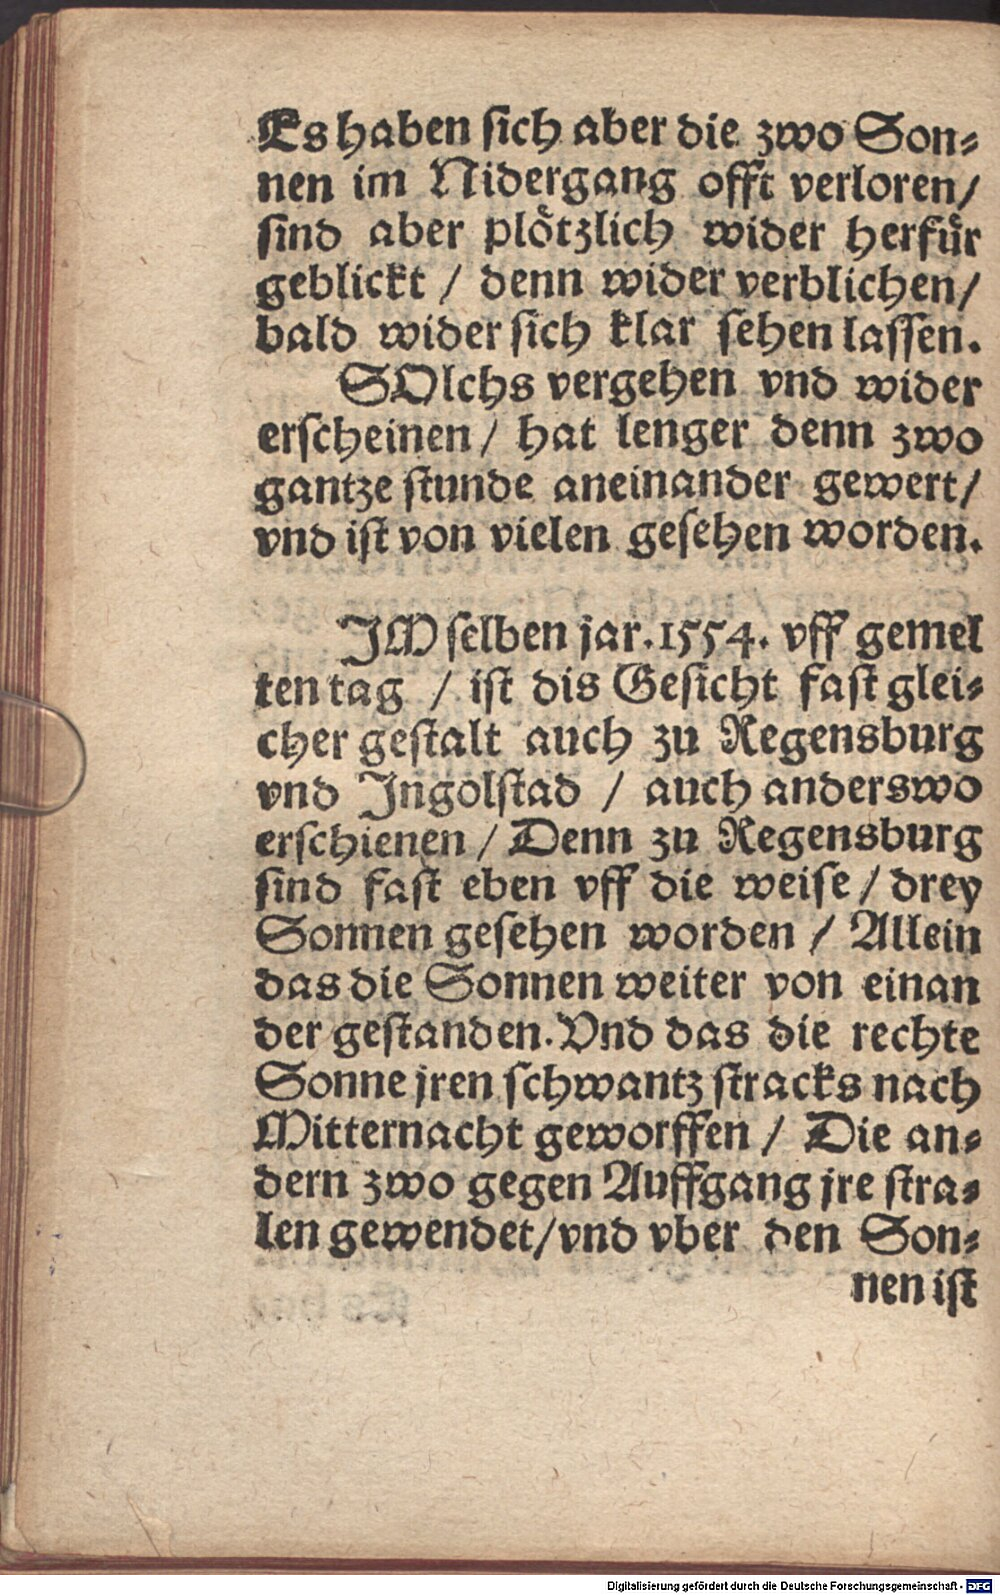 Es haben sich aber die zwo Son⸗
nen im Nidergang offt verloren/
sind aber plötzlich wider herfür
geblickt / denn wider verblichen/
bald wider sich klar sehen lassen.
SOlchs vergehen vnd wider
erscheinen / hat lenger denn zwo
gantze stunde aneinander gewert/
vnd ist von vielen gesehen worden.
JM selben jar. 1554. vff gemel
ten tag / ist dis Gesicht fast glei⸗
cher gestalt auch zu Regensburg
vnd Jngolstad / auch anderswo
erschienen / Denn zu Regensburg
sind fast eben vff die weise / drey
Sonnen gesehen worden / Allein
das die Sonnen weiter von einan
der gestanden. Vnd das die rechte
Sonne jren schwantz stracks nach
Mitternacht geworffen / Die an⸗
dern zwo gegen Auffgang jre stra⸗
len gewendet/vnd vber den Son⸗
nen ist
Digitalisierung gefördert durch die Deutsche Forschungsgemeinschaft - DFG